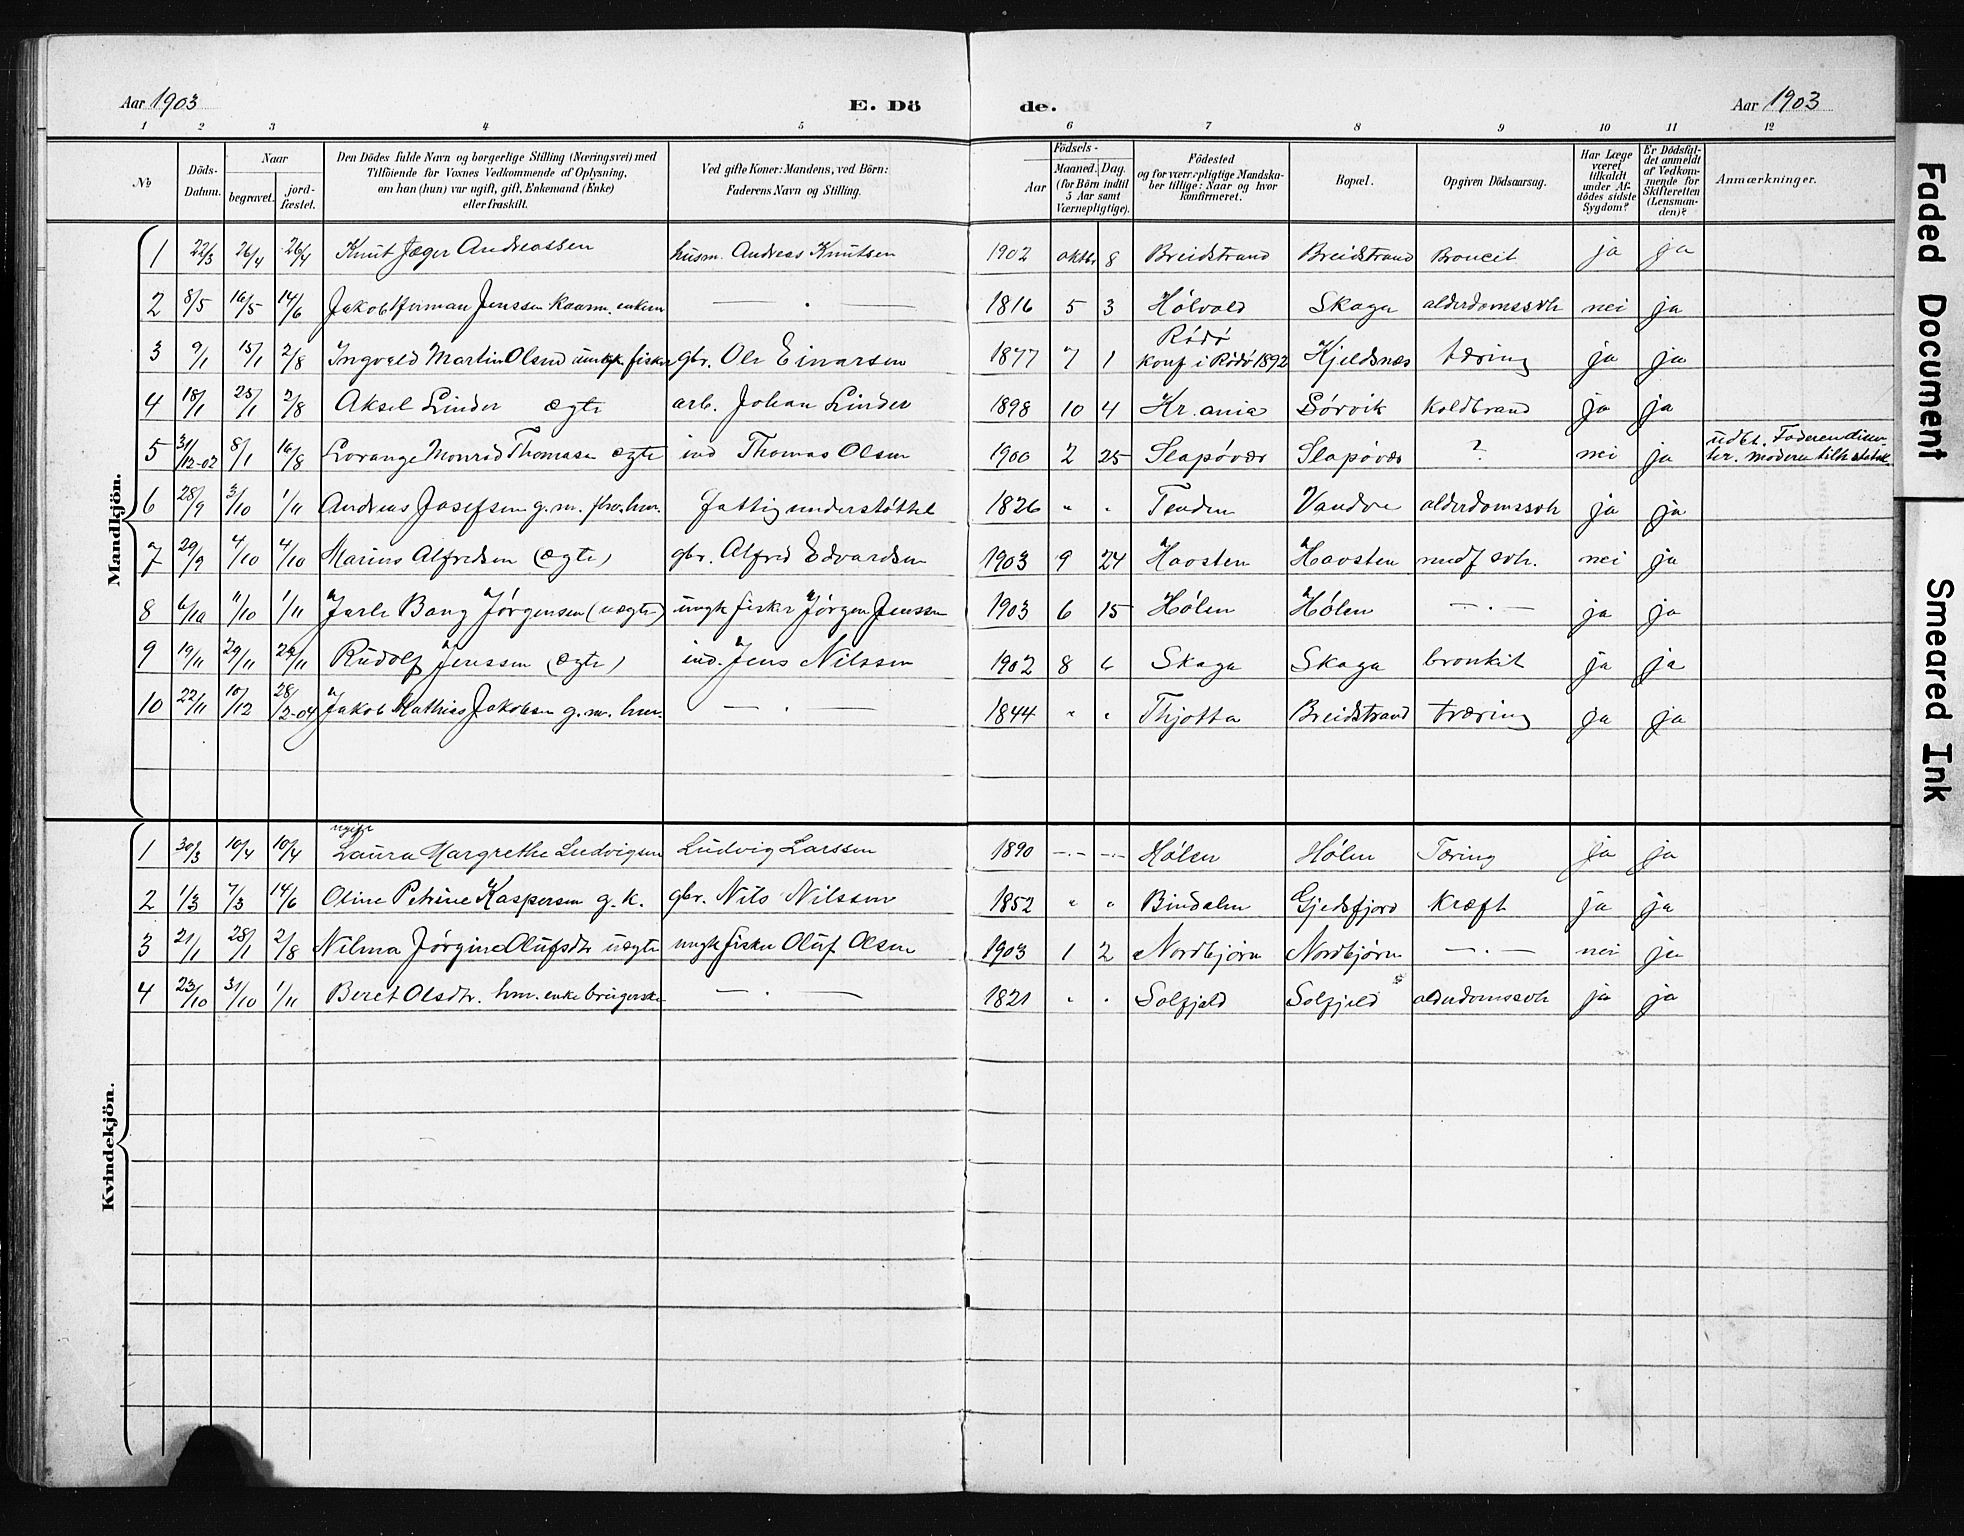 Aar 1903 E. Dö de. Aar 1903
1 2 3 4 5 6 7 8 9 10 11 12
No Döds-Datum. Naar begravet. jord-fæstet. Den Dödes fulde Navn og borgerlige Stilling (Næringsvei) med Tilföiende for Voxnes Vedkommende af Oplysning, om han (hun) var ugift, gift, Enkemand (Enke) eller fraskilt. Ved gifte Koner: Mandens, ved Börn: Faderens Navn og Stilling. Födsels- Aar Maaned. Dag. (for Börn indtil 5 Aar samt Værnepligtige). Födested og for værnepligtige Mandska-ber tillige: Naar og hvor konfirmeret. Bopæl. Opgiven Dödsaarsag. Har Læge været tilkaldt under Af-dödes sidste Sygdom? Er Dödsfal-det anmeldt af Vedkom-mende for Skifteretten (Lensman-den)? Anmærkninger.
Mandkjön.
1 22/3 26/4 26/4 Knut Jæger Andreassen husm. Andreas Knutsen 1902 oktbr 8 Breidstrand Breidstrand Broncit ja ja
2 8/5 16/5 14/6 Jakob Jenssen enkem — . — 1816 5 3 Hølvold Skaga alderdomssvh nei ja
3 9/1 15/1 2/8 Ingvald Martin Olsen ungk. fisker gbr. Ole Einarsen 1877 7 1 Rødø konf i Rødø 1892 Kjeldsnæs tæring ja ja
4 18/1 25/1 2/8 Aksel Linder ægte arb. Johan Linder 1898 10 4 Kr.ania Sørvik Koldbrand ja ja
5 31/12-02 8/1 16/8 Lorange Monrad Thomassen ægte ind Thomas Olsen 1900 2 25 Slapøvær Slapøvær ? nei ja udbt. Faderen dissenter. moderen tilh statsk.
6 28/9 3/10 1/11 Andreas Josefsen g.m. hm. fattigunderstøttet 1826 " " Tenden Vandve alderdomssvh ja ja
7 29/9 4/10 4/10 Marius Alfredsen (ægte) gbr. Alfred Edvardsen 1903 9 24 Haosten Haosten medf svh. nei ja
8 6/10 11/10 1/11 Jarle Bang Jørgensen (uægte) ungk fisker Jørgen Jenssen 1903 6 15 Hølen Hølen — . — ja ja
9 19/11 29/11 29/11 Rudolf Jenssen (ægte) ind. Jens Nilssen 1902 8 6 Skaga Skaga bronkit ja ja
10 22/11 10/12 28/2-04 Jakob Mathias Jakobsen g.m. hm. — . — 1844 " " Thjotta Breidstrand træring ja ja
Kvindekjön.
ugift
1 30/3 10/4 10/4 Laura Margrethe Ludvigsen Ludvig Larssen 1890 —.— —.— Hølen Hølen Tæring ja ja
2 1/3 7/3 14/6 Oline Petrine Kaspersen g.k. gbr. Nils Nilssen 1852 " " Bindalen Gjedsfjord Kræft ja ja
3 21/1 28/1 2/8 Nilma Jørgine Olufsdtr uægte ungk fisker Oluf Olsen 1903 1 2 Nordbjørn Nordbjørn — . — nei ja
4 23/10 31/10 1/11 Beret Olsdtr. hm. enke brugerske — . — 1821 " " Solfjeld Solfjeld alderdomssvh ja ja
Faded Document
Smeared Ink